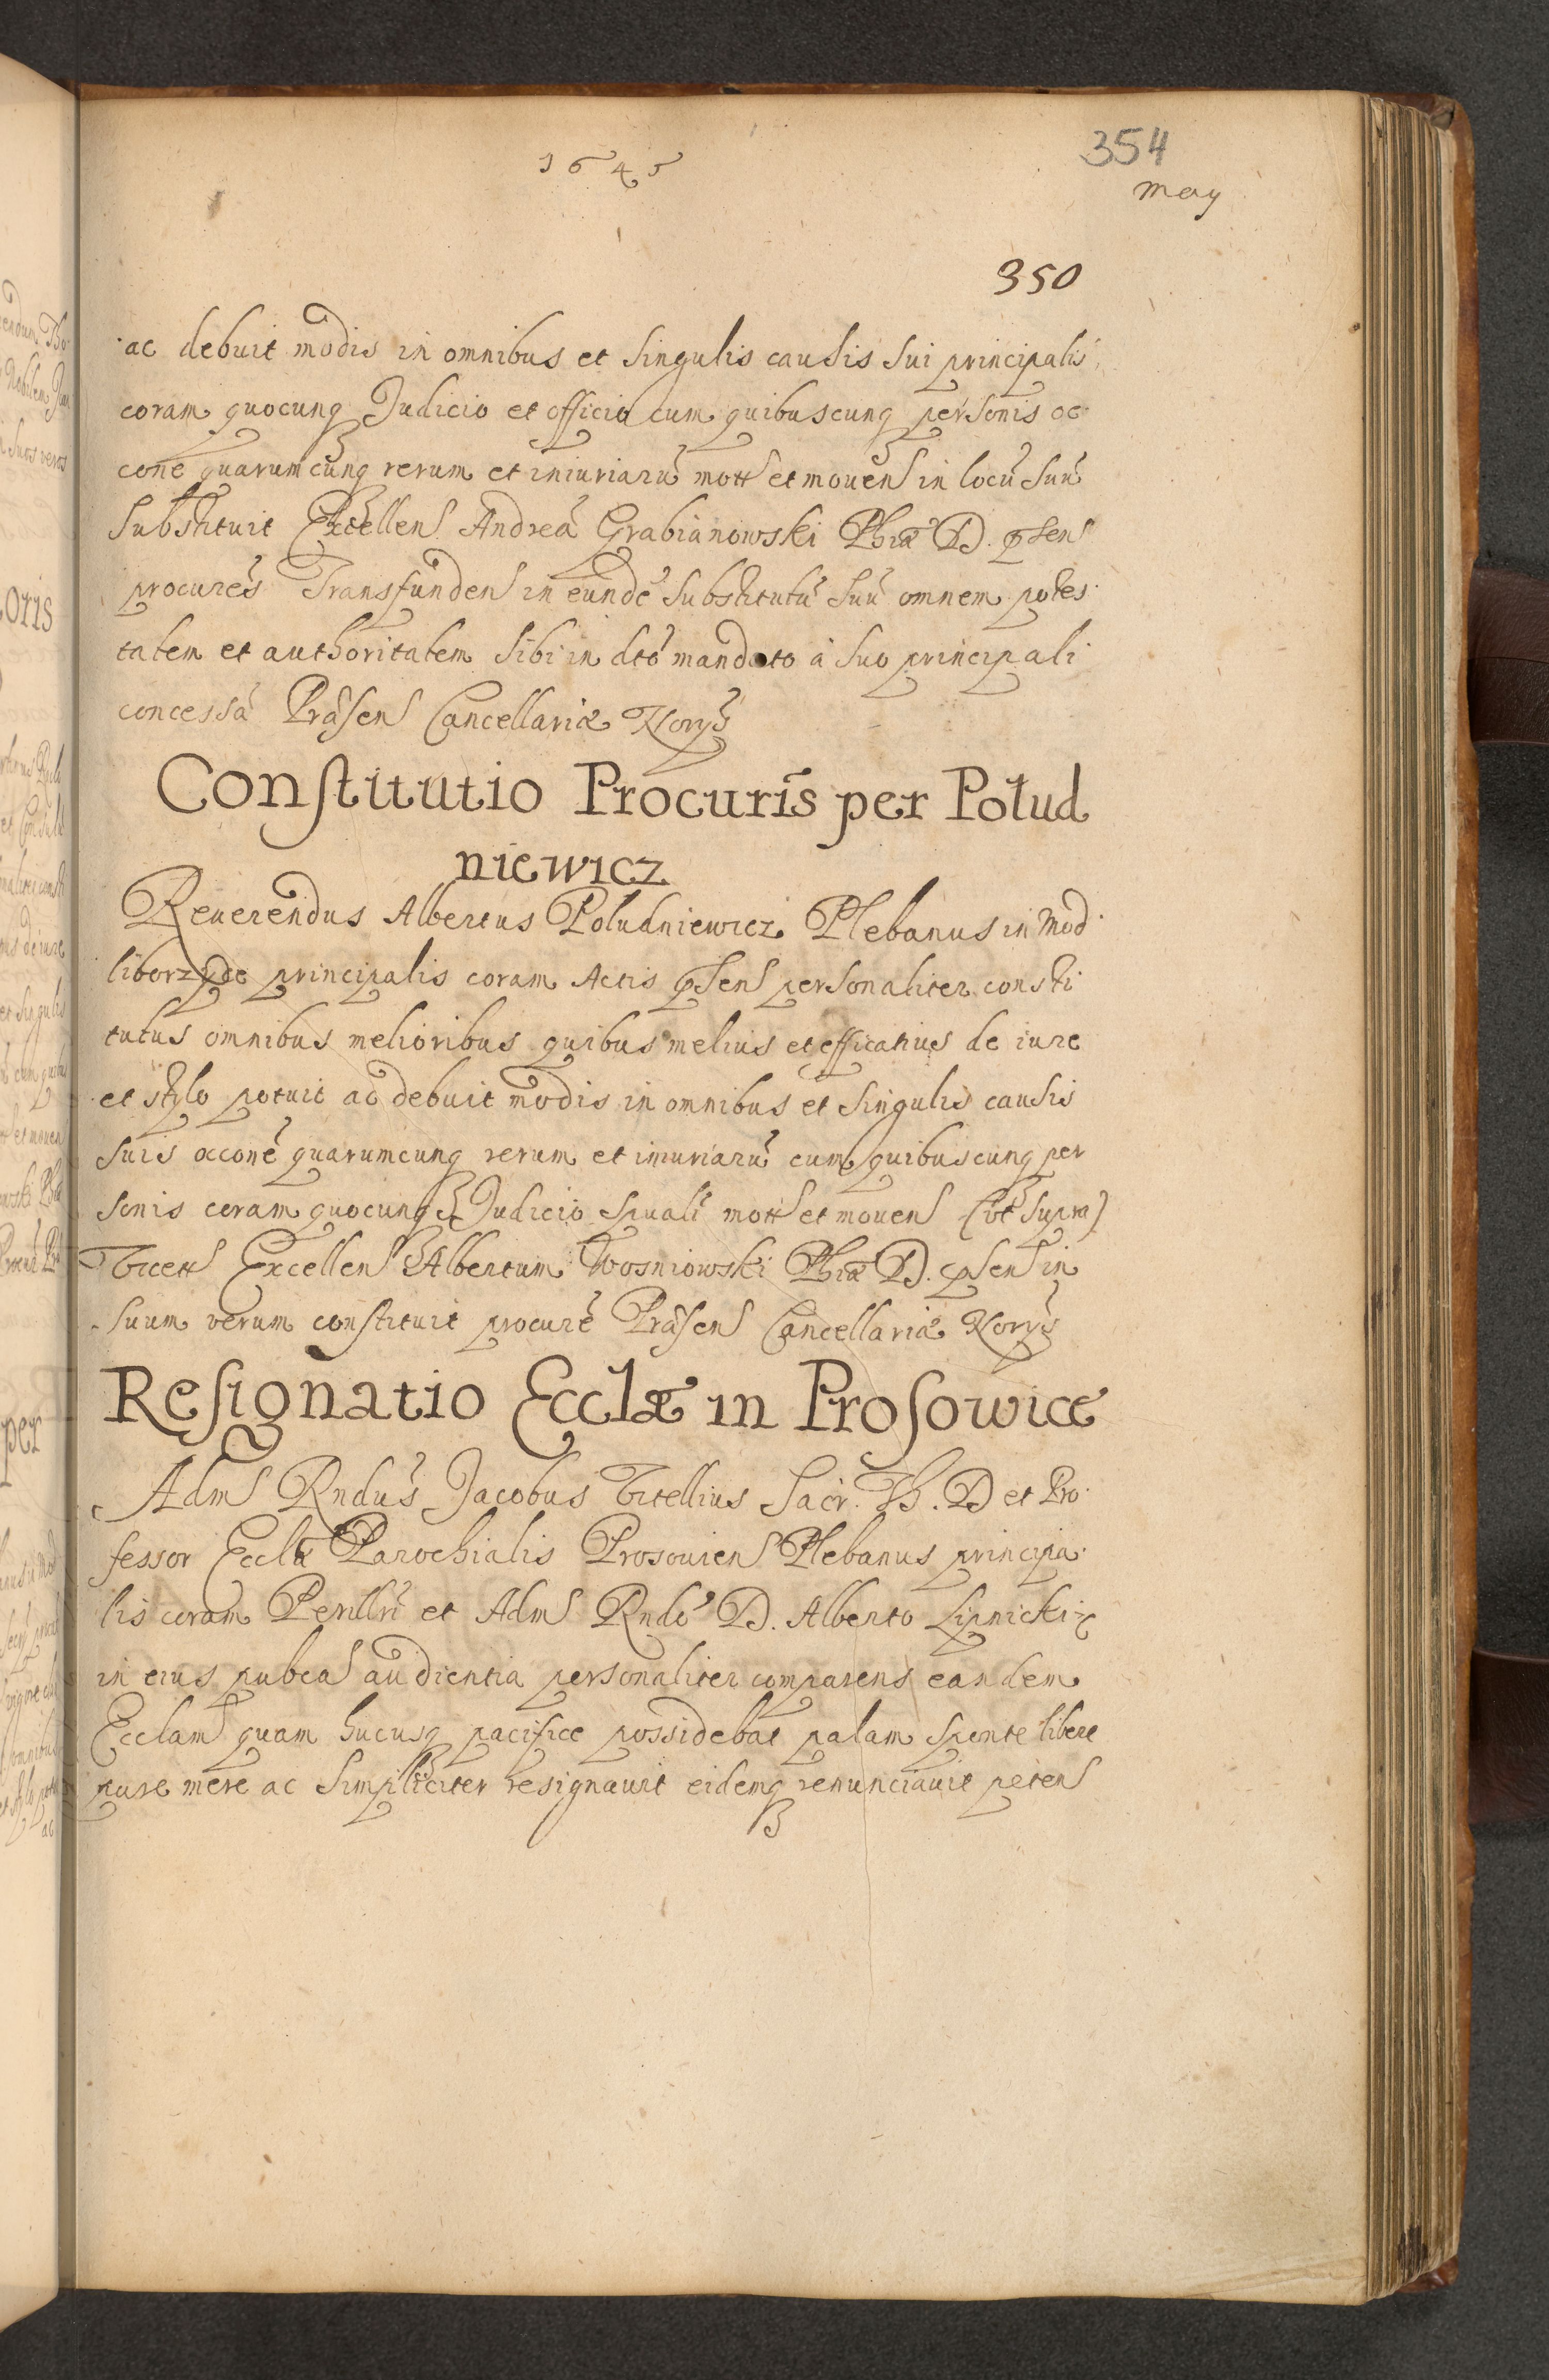 1645
354
May
350
ac debuit modis in omnibus et singulis causis sui principalis
coram quocunq Judicio et officio cum quibuscunq personis oc
cone quarumcunq rerum et iniuriarũ mott et mouen in locũ suũ
substituit Excellen Andreã Grabianowski Phiæ D. pñsen
procurẽs Transfunden in eundẽ substitutũ suũ omnem potes
tatem et authoritatem sibi in dto mandato a suo principali
concessã Præsen Cancellariæ
Constitutio Procuris per Połud
niewicz
Reuerendus Albertus Poludniewicz Plebanus in Mod
liborzyde principalis coram Actis pñsen personaliter consti
tutus omnibus melioribus quibus melius et efficatius de iure
et stylo potuit ac debuit modis in omnibus et singulis causis
suis occone quarumcunq rerum et iniuriarũ cum quibuscunq per
sonis coram quocunq Judicio spuali mott et mouen (vt supra)
Excellen Albertum Wosniowski Phiæ D. pñsen in
suum verum constituit procurẽ Præsen Cancellariæ
Resignatio Ecclæ in Prosowice
Adm Rndus Jacobus Vitellius Sacr. Th. D et Pro
fessor Ecclæ Parochialis Prosouien Plebanus principa
lis coram Perillri et Adm Rndo D. Alberto Lipnicki
in eius pubca audientia personaliter comparens eandem
Ecclam quam hucusq pacifice possidebat palam sponte libere
pure mere ac simpliciter resignauit eidemq renunciauit peten